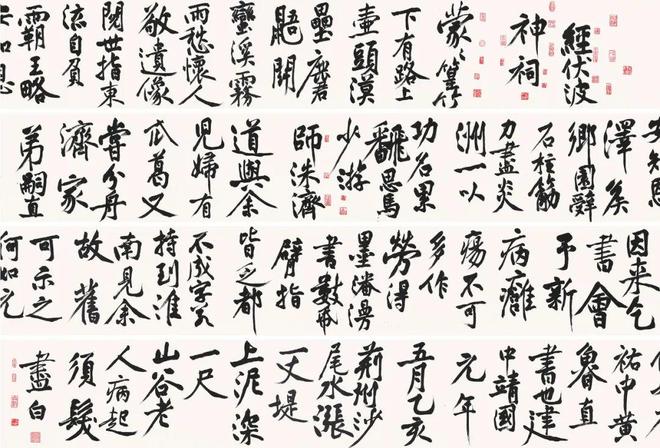 經伏波
神祠
蒙々篁竹
下有路上
壺頭漢
壘麏
鼯鬭
蠻溪霧
雨愁懷人
敬遺像
閱世指東
流自負
霸王略
安知恩
澤矦
鄉園辭
石柱筋
力盡炎
洲一以
功名累
翻思馬
少游
師洙濟
道與余
兒婦有
瓜葛又
嘗分舟
濟家
弟嗣直
因来乞
書會
予新
病癰
瘍不可
多作
勞得
墨瀋漫
書數帋
臂指
皆乏都
不成字若
持到淮
南見余
故舊
可示之
何如元
祐中黃
魯直
書也建
中靖國
元年
五月乙亥
荊州沙
尾水漲
一丈堤
上泥深
一尺
山谷老
人病起
須髮
盡白